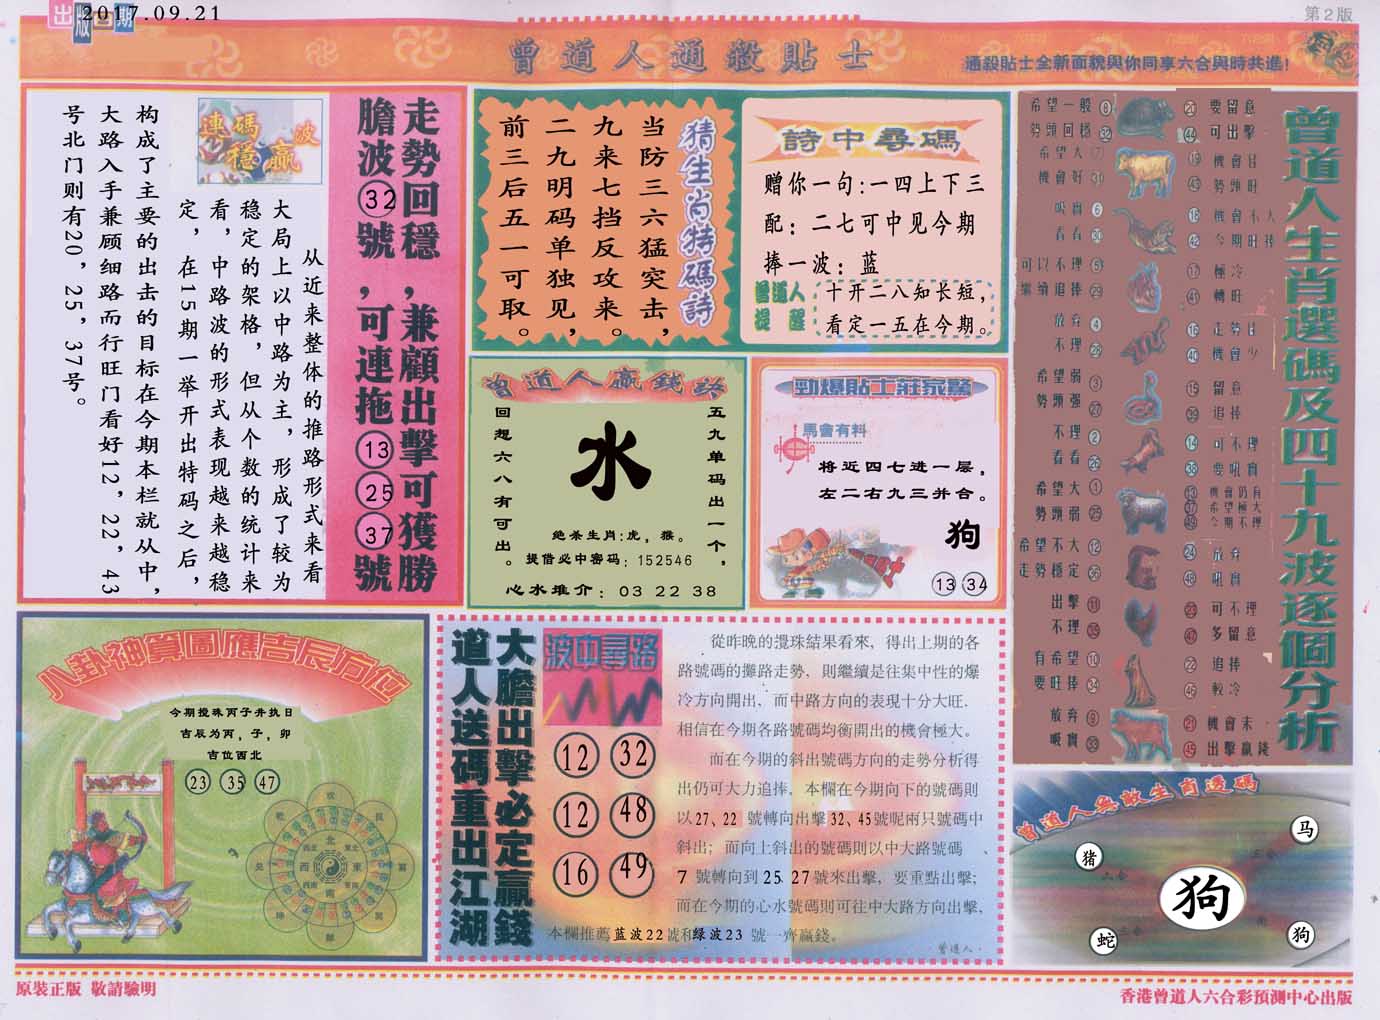 出版日期
2017.09.21
第2版
曾道人通殺貼士
通殺貼士全新面貌與你同享六合與時共進!
走勢回穩,兼顧出擊可獲勝
膽波32號,可連拖132537號
連碼波
穩贏
从近来整体的推路形式来看
大局上以中路为主,形成了较为
稳定的架格,但从个数的统计来
看,中路波的形式表现越来越稳
定,在15期一举开出特码之后,
构成了主要的出击的目标在今期本栏就从中,
大路入手兼顾细路而行旺门看好12,22,43
号北门则有20,25,37号。
猜生肖特碼詩
当防三六猛突击,
九来七挡反攻来。
二九明码单独见,
前三后五一可取。
詩中尋碼
赠你一句:一四上下三
配:二七可中见今期
捧一波:蓝
曾道人
提醒
十开二八知长短,
看定一五在今期。
曾道人贏錢訣
五九单码出一个,
回想六八有可出。
水
绝杀生肖:虎,猴。
提借必中密码:152546
心水推介:03 22 38
勁爆貼士莊家驚
馬會有料
将近四七进一层,
左二右九三并合。
狗
13 34
曾道人生肖選碼及四十九波逐個分析
希望一般 8
勢頭回穩 32
希望大
機會好 31
吸實 6
看看 30
可以不理 5
繼續追捧 29
放弃 4
不理 28
希望弱 3
勢頭强 27
不理 2
看看 26
希望大 1
勢頭弱 25
希望不大 12
走勢穩定 36
出擊 11
不理 35
有希望 10
要旺捧 34
放弃 9
吸實 33
20 要留意
44 可出擊
19 機會佳
43 勢頭旺
18 機會不大
42 今期旺捧
17 極冷
41 轉旺
16 走勢佳
40 機會少
15 留意
39 追捧
14 可不理
38 要吼實
13 機會仍有
37 希望極大
49 今期不理
24 放弃
48 吼實
23 可不理
47 多留意
22 追捧
46 較冷
21 機會末
45 出擊贏錢
八卦神算圖應吉辰方位
今期搅珠丙子井执日
吉辰为丙,子,卯
吉位西北
23 35 47
北
東
南
西
大膽出擊必定贏錢
道人送碼重出江湖
波中尋路
12 32
12 48
16 49
從昨晚的攪珠結果看來,得出上期的各
路號碼的攤路走勢,則繼續是往集中性的爆
冷方向開出,而中路方向的表現十分大旺.
相信在今期各路號碼均衡開出的機會極大。
而在今期的斜出號碼方向的走勢分析得
出仍可大力追捧,本欄在今期向下的號碼則
以27、22 號轉向出擊32、45號呢兩只號碼中
斜出;而向上斜出的號碼則以中大路號碼、
7 號轉向到25 27號來出擊,要重點出擊;
而在今期的心水號碼則可往中大路方向出擊,
本欄推薦蓝波22號和绿波23 號一齊贏錢。
曾道人.
曾道人無敵生肖透碼
马
猪
六合
狗
蛇
狗
原裝正版 敬請驗明
香港曾道人六合彩預測中心出版